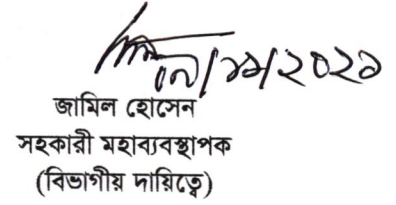 /১১/২০২১
জামিল হোসেন
সহকারী মহাব্যবস্থাপক
(বিভাগীয় দায়িত্বে)